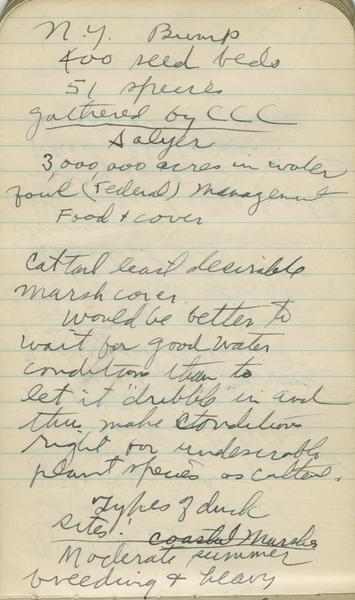 N.Y. Bump
400 seed beds
51 species
gathered by CCC
Salyer
3,000,000 acres in water
fowl (Federal) management
Food + cover
Cattail least desirable
marsh cover.
Would be better to
wait for good water
conditions than to
let it "dribble" in and
thus make conditions
right for undesirable
plant species as cattail.
Types of duck
sites: coastal marshes
Moderate summer
breeding & heavy